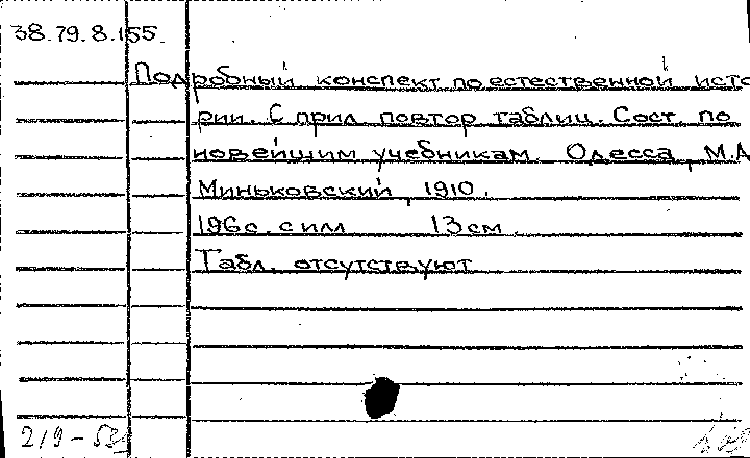 38.79.8.155.
Подробный конспект по естественной исто
рии. С прил. повтор. таблиц. Сост. по
новейшим учебникам. Одесса, М.А.
Миньковский, 1910.
196 с. с илл 13 см
Табл. отсутствуют
219-53